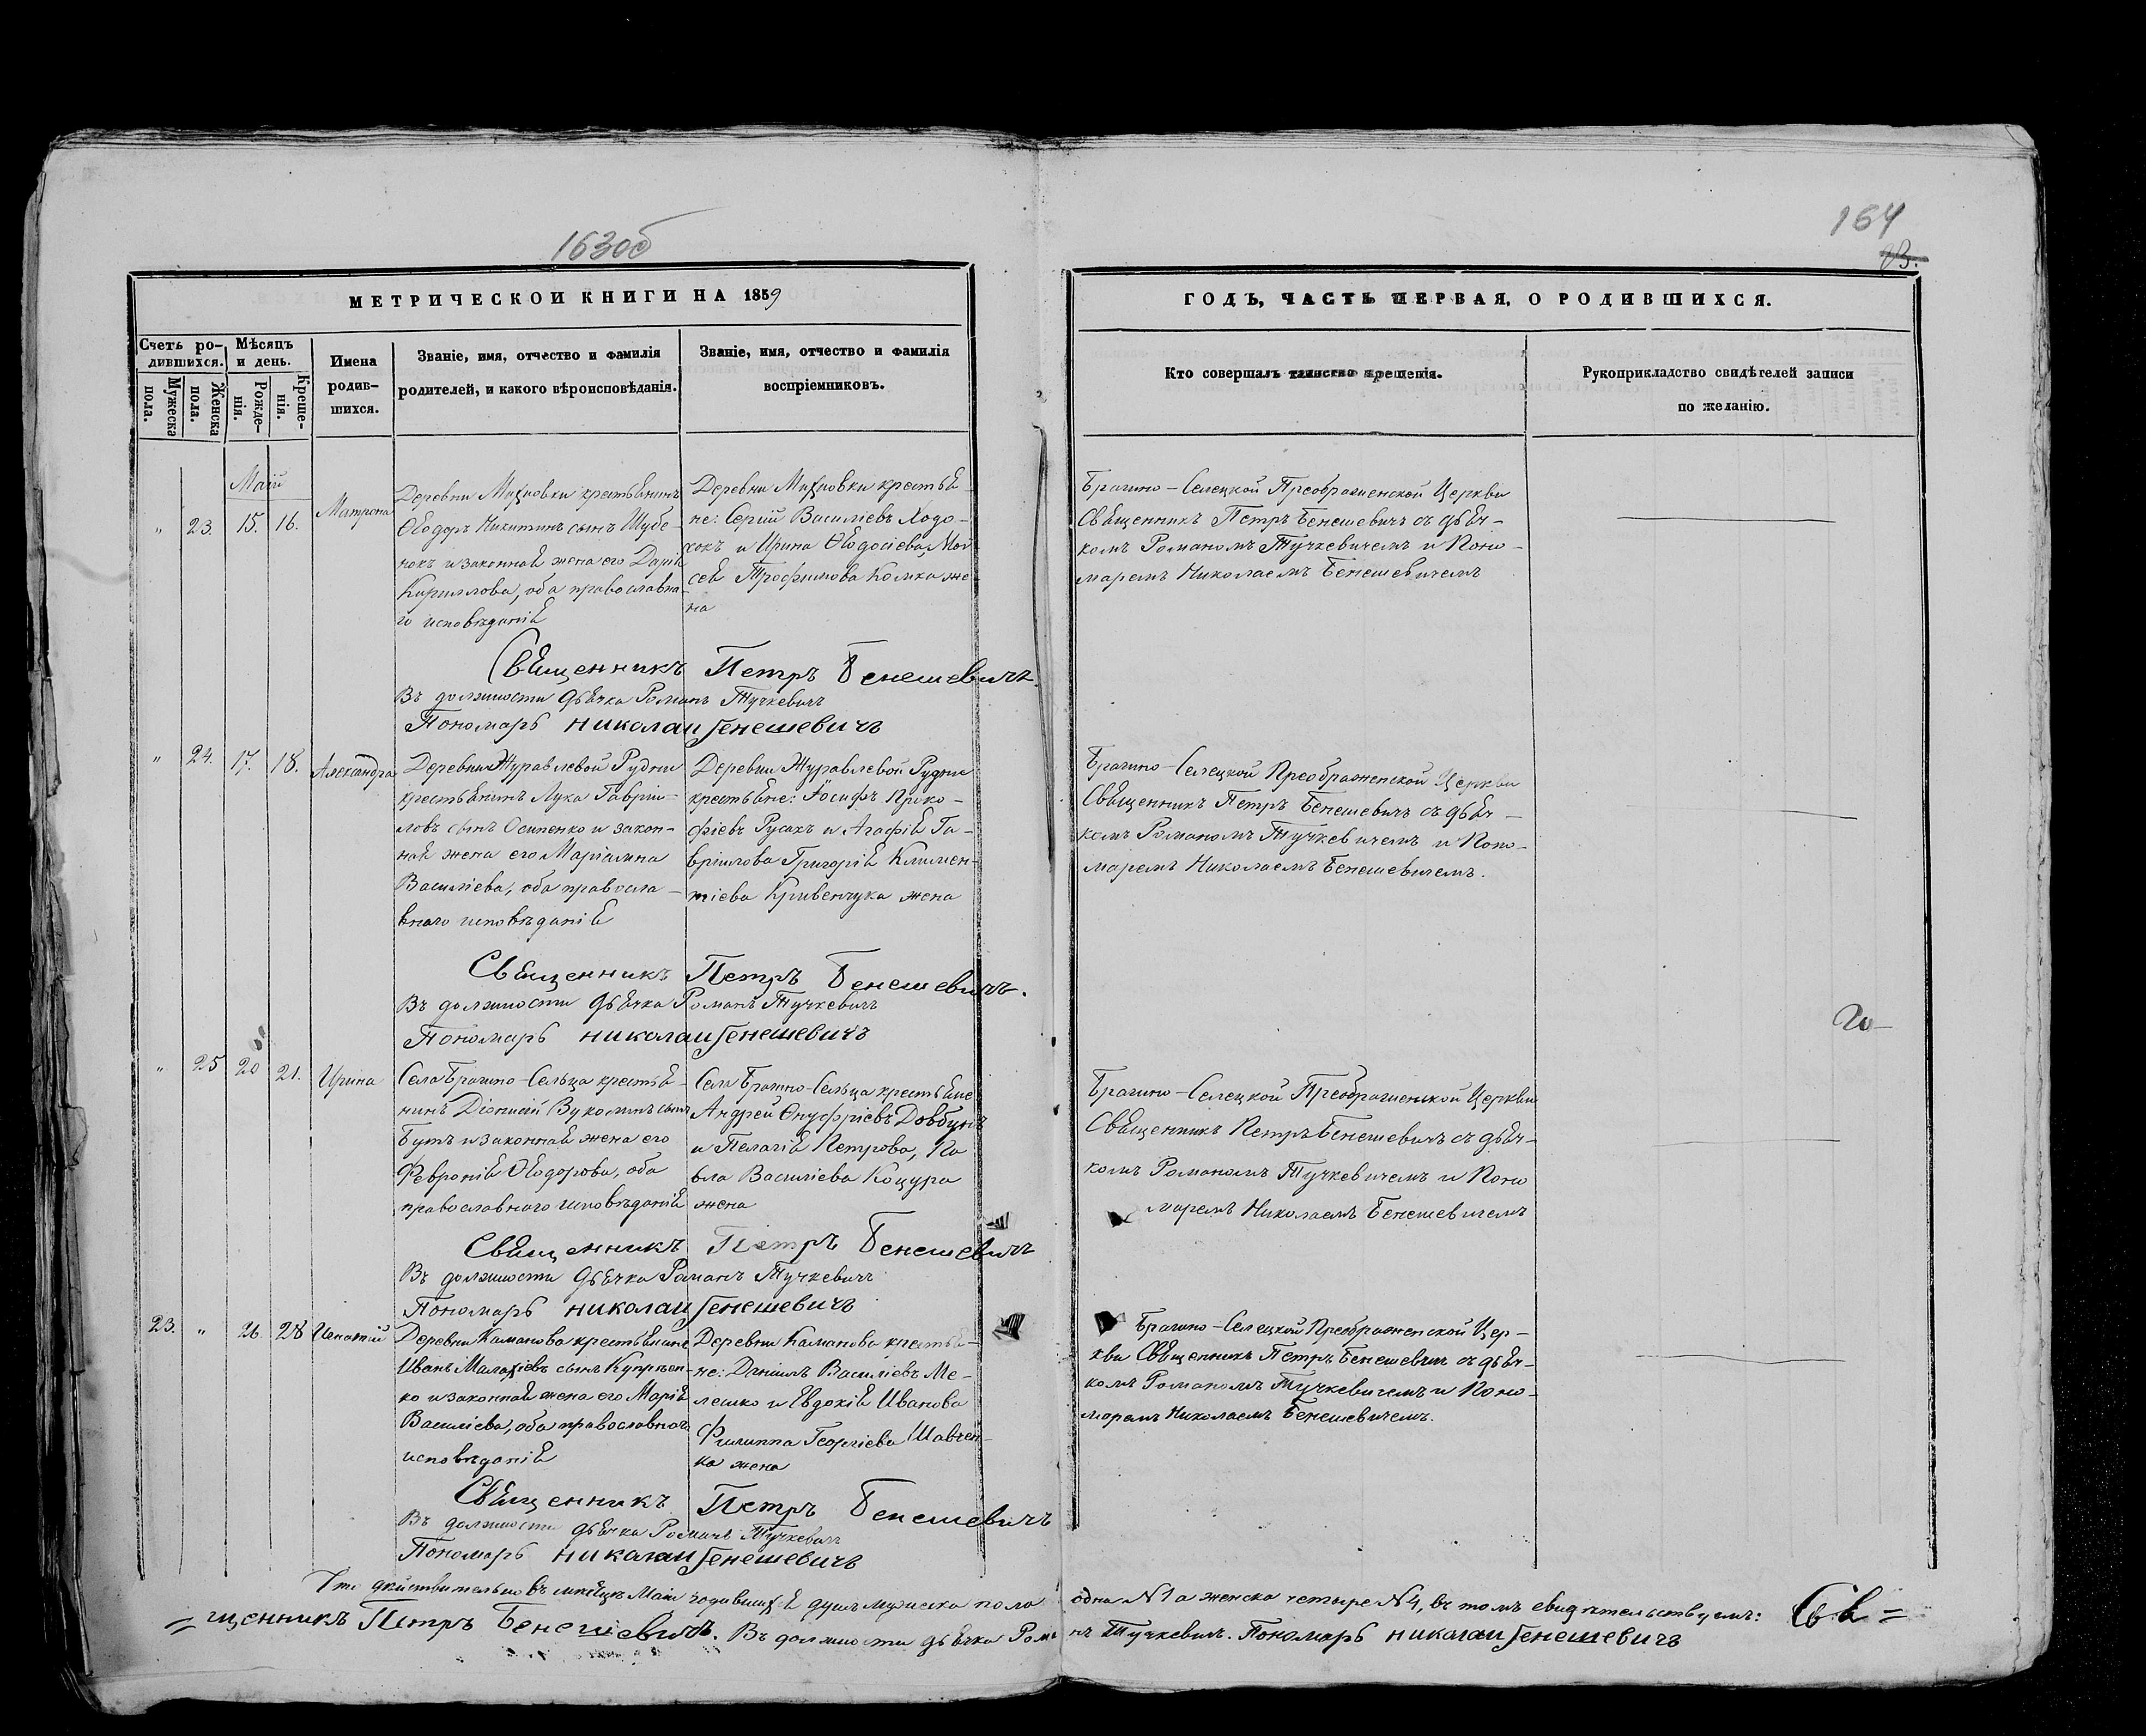 163об
164
83.
МЕТРИЧЕСКОЙ КНИГИ НА 1859
ГОДЪ, ЧАСТЬ ПЕРВАЯ, О РОДИВШИХСЯ.
Счетъ ро-
дившихся.
Мужеска пола.
Женска пола.
Мѣсяцъ
и день.
Рожде-
нія.
Креще-
нія.
Имена
родив-
шихся.
Званіе, имя, отчество и фамилія
родителей, и какого вѣроисповѣданія.
Званіе, имя, отчество и фамилія
воспріемниковъ.
Кто совершалъ таинство крещенія.
Рукоприкладство свидѣтелей записи
по желанію.
Маій
" 23. 15. 16. Матрона
Деревни Михновки крестьянинъ
Ѳеодоръ Никитинъ сынъ Шубе-
нокъ и законная жена его Дарія
Кириллова, оба православна-
го исповѣданія
Деревни Михновки крестья-
не: Сергій Василіевъ Ходо-
кокъ и Ирина Ѳеодосіева, Мой
сея Трофимова Комка же-
на
Брагино-Селецкой Преображенской Церкви
Священникъ Петръ Бенешевичъ съ дьяч-
комъ Романомъ Тучкевичемъ и Поно-
маремъ Николаемъ Бенешевичемъ
Священникъ Петръ Бенешевичъ.
Въ должности дьячка Романъ Тучкевичъ
Пономарь Николай Бенешевичъ
" 24. 17. 18. Александра
Деревни Журавлевой Рудни
крестьянинъ Лука Гавріи-
ловъ сынъ Осипенко и закон-
ная жена его Маріамна
Василіева, оба правосла-
внаго исповѣданія
Деревни Журавлевой Рудни
крестьяне: Іосифъ Проко-
фіевъ Русакъ и Агафія Га-
вріилова Григорія Климен-
тіева Кривенчука жена
Брагино-Селецкой Преображенской Церкви
Священникъ Петръ Бенешевичъ съ дьяч-
комъ Романомъ Тучкевичемъ и Поно-
маремъ Николаемъ Бенешевичемъ.
Священникъ Петръ Бенешевичъ.
Въ должности дьячка Романъ Тучкевичъ
Пономарь Николай Бенешевичъ
" 25 20 21. Ирина
Села Брагино-Сельца крестья-
нинъ Діонисій Вуколинъ сынъ
Бутъ и законная жена его
Февронія Ѳеодорова, оба
православнаго исповѣданія
Села Брагино-Сельца крестьяне
Андрей Онуфріевъ Довбунъ
и Пелагія Петрова, Па
вла Василіева Коцура
жена
Брагино-Селецкой Преображенской Церкви
Священникъ Петръ Бенешевичъ съ дьяч-
комъ Романомъ Тучкевичемъ и Поно
маремъ Николаемъ Бенешевичемъ
Священникъ Петръ Бенешевичъ
Въ должности дьячка Романъ Тучкевичъ
Пономарь Николай Бенешевичъ
23. " 26. 28 Игнатій
Деревни Каманова крестьянинъ
Иванъ Малахіевъ сынъ Купріен-
ко и законная жена его Марія
Василіева, оба православнаго
исповѣданія
Деревни Каманова крестья-
не: Даніилъ Василіевъ Ме-
лешко и Евдокія Иванова
Филиппа Георгіева Шавчен-
ка жена
Брагино-Селецкой Преображенской Цер-
кви Священникъ Петръ Бенешевичъ съ дьяч-
комъ Романомъ Тучкевичемъ и Поно-
маремъ Николаемъ Бенешевичемъ.
Священникъ Петръ Бенешевичъ
Въ должности дьячка Романъ Тучкевичъ
Пономарь Николай Бенешевичъ
Что дѣйствительно въ мѣсяцѣ Маіи родившихся душъ мужеска пола одна №1 а женска четыре №4, въ томъ свидѣтельствуемъ: Свя=
=щенникъ Петръ Бенешевичъ. Въ должности дьячка Романъ Тучкевичъ. Пономарь Николай Бенешевичъ